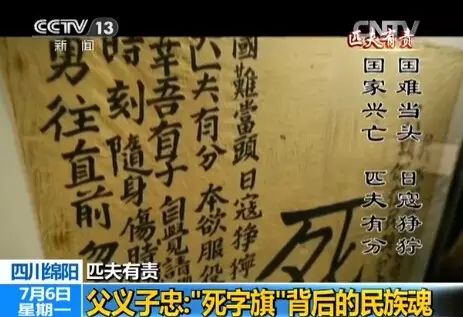 CCTV 13
新闻
CNTV
匹夫有责
国难当头 日寇狰狞
国家兴亡 匹夫有分
死
國難當頭日寇猙獰
匹夫有分本欲服役
幸吾有子自覺請
時刻隨身傷時
勇往直前勿
四川绵阳
7月6日
星期一
匹夫有责
父义子忠:"死字旗"背后的民族魂